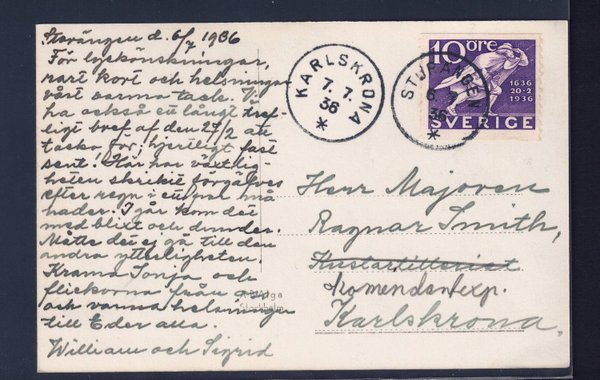 Storängen d. 6/7 1936
För lyckönskningar,
rart kort och helsningar
vårt varma tack. Vi
ha också ett långt tref-
ligt bref af den 27/2 att
tacka för, hjertligt fast
sent! Här har växtlig-
heten skrikit förgäfves
efter regn i må-
nader. I går kom det
med blixt och dunder.
Måtte det ej gå till den
andra ytterligheten.
Krama Sonja och
flickorna från oss
och varma helsningar
till Eder alla.
William och Sigrid
KARLSKRONA
7. 7.
36
STORÄNGEN
6
36
10 ÖRE
1636
20-2
1936
SVERIGE
Herr Majoren
Ragnar Smith,
Kustartilleriet
Komendantexp.
Karlskrona